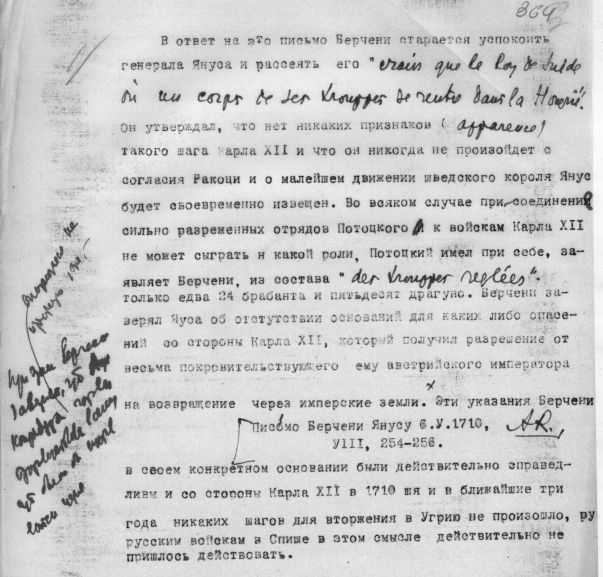 364
В ответ на это письмо Берчени старается успокоить
генерала Януса и рассеять его "crains que le Roy de Suède
ou un corps de ses trouppes se rentre dans la Hongrie".
Он утверждал, что нет никаких признаков (apparence)
такого шага Карла XII и что он никогда не произойдет с
согласия Ракоци и о малейшем движении шведского короля Янус
будет своевременно извещен. Во всяком случае при соединении
сильно разреженных отрядов Потоцкого к войскам Карла XII
не может сыграть н какой роли, Потоцкий имел при себе, за-
являет Берчени, из состава "des trouppes reglées".
только едва 24 брабанта и пятьдесят драгуно. Берчени за-
верял Яуса об отстутствии оснований для каких либо опасе-
ний со стороны Карла XII, который получил разрешение от
весьма покровительствующего ему австрийского императора
на возвращение через имперские земли.× Эти указания Берчени
Письмо Берчени Янусу 6.У.1710, AR,
УIII, 254-256.
в своем конкретном основании были действительно справед-
ливы и со стороны Карла XII в 1710 шя и в ближайшие три
года никаких шагов для вторжения в Угрию не произошло, ру
русским войскам в Спише в этом смысле действительно не
пришлось действовать.
При этом Берчени